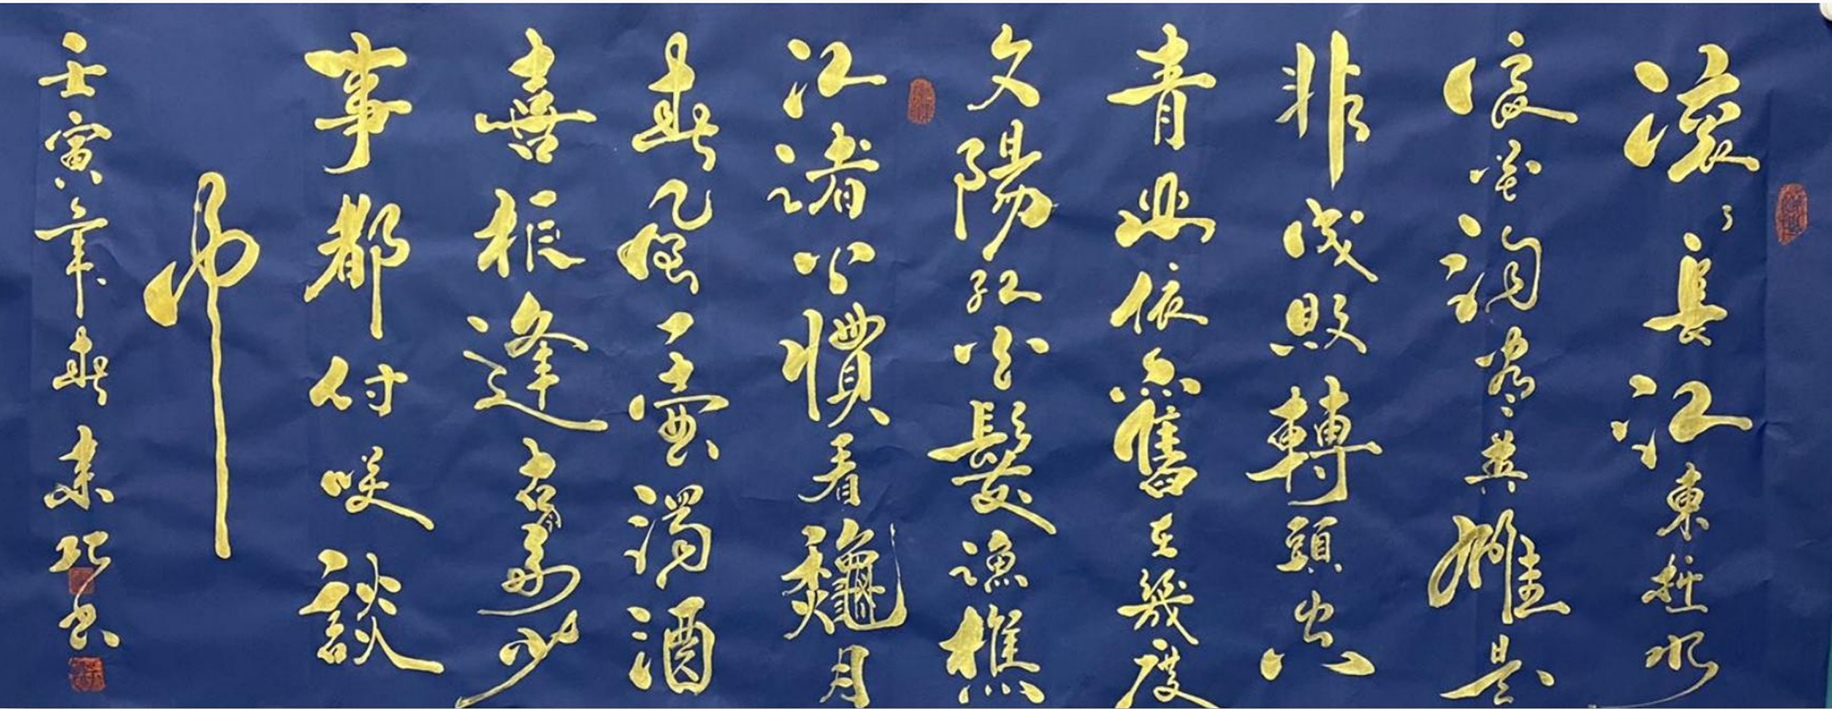 滾〻長江東逝水
浪花淘盡英雄是
非成敗轉頭空
青山依舊在幾度
夕陽紅白髮漁樵
江渚上慣看龝月
春風一壺濁酒
喜相逢古今多少
事都付咲談
中
壬寅年春 书